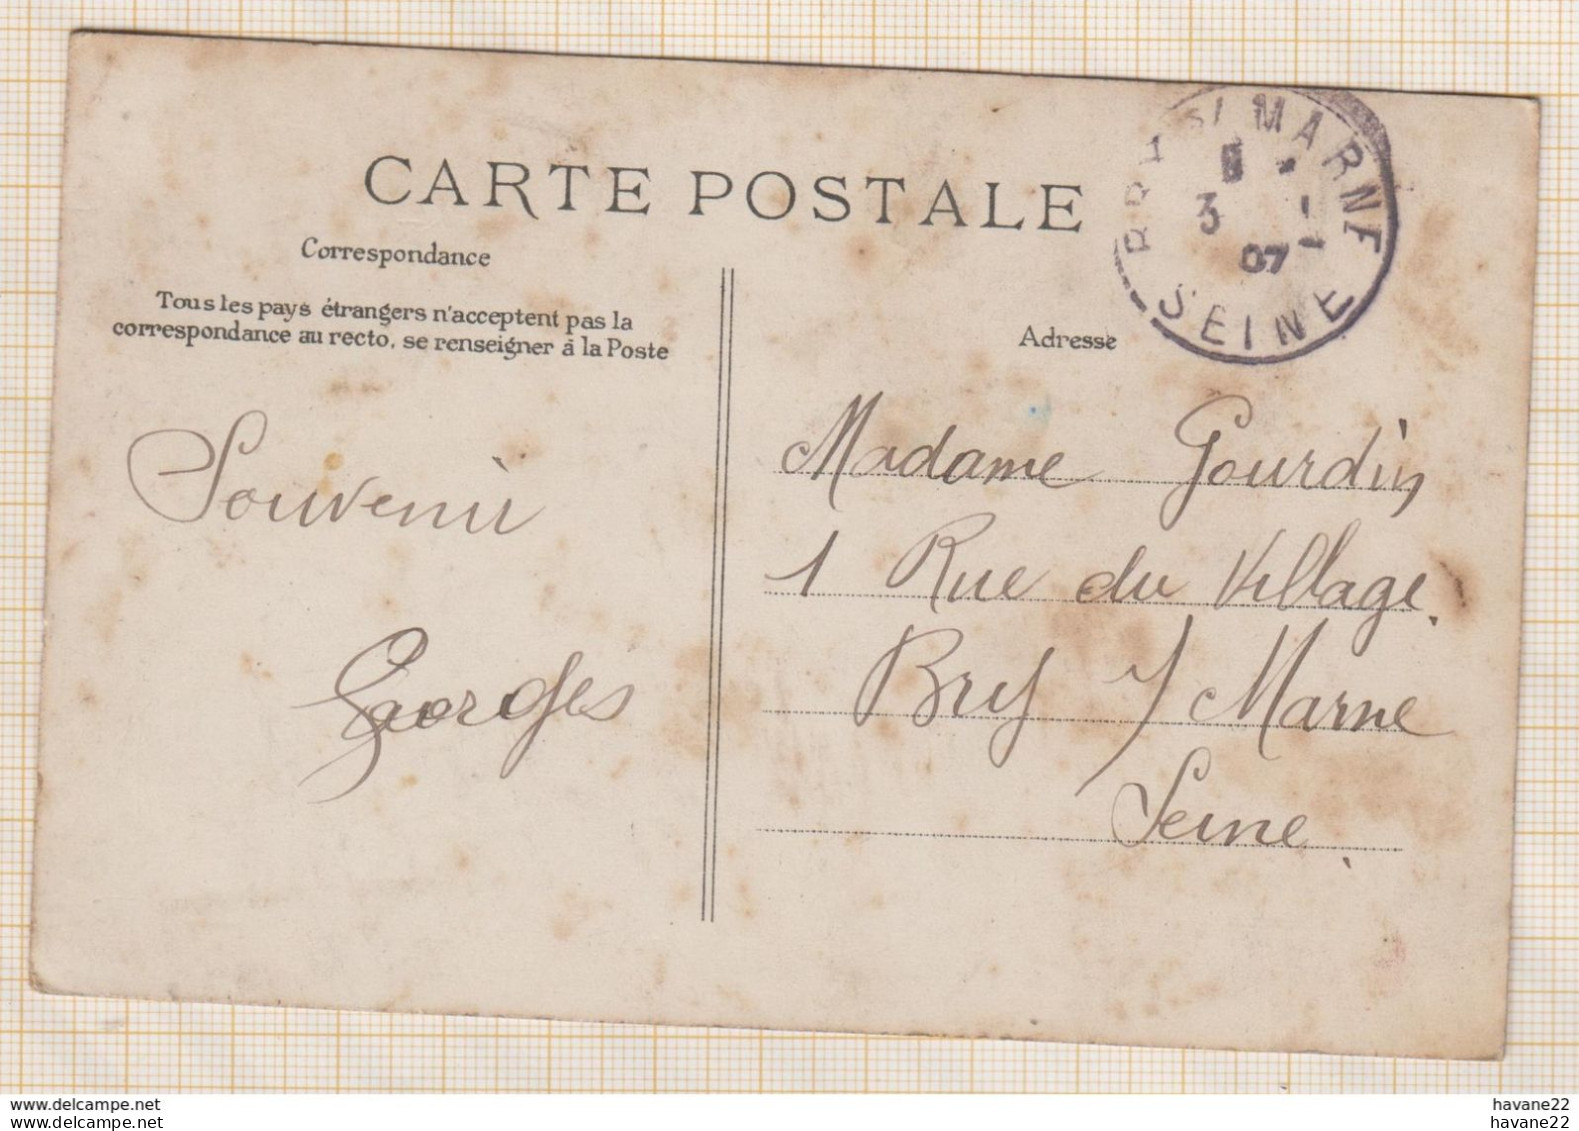 CARTE POSTALE
Correspondance
Tous les pays étrangers n'acceptent pas la
correspondance au recto, se renseigner à la Poste
Souvenir
Georges
BRY S/ MARNE
3
07
SEINE
Adresse
Madame Gourdin
1 Rue du Village.
Bry s/ Marne
Seine.
www.delcampe.net
havane22
www.delcampe.net
havane22